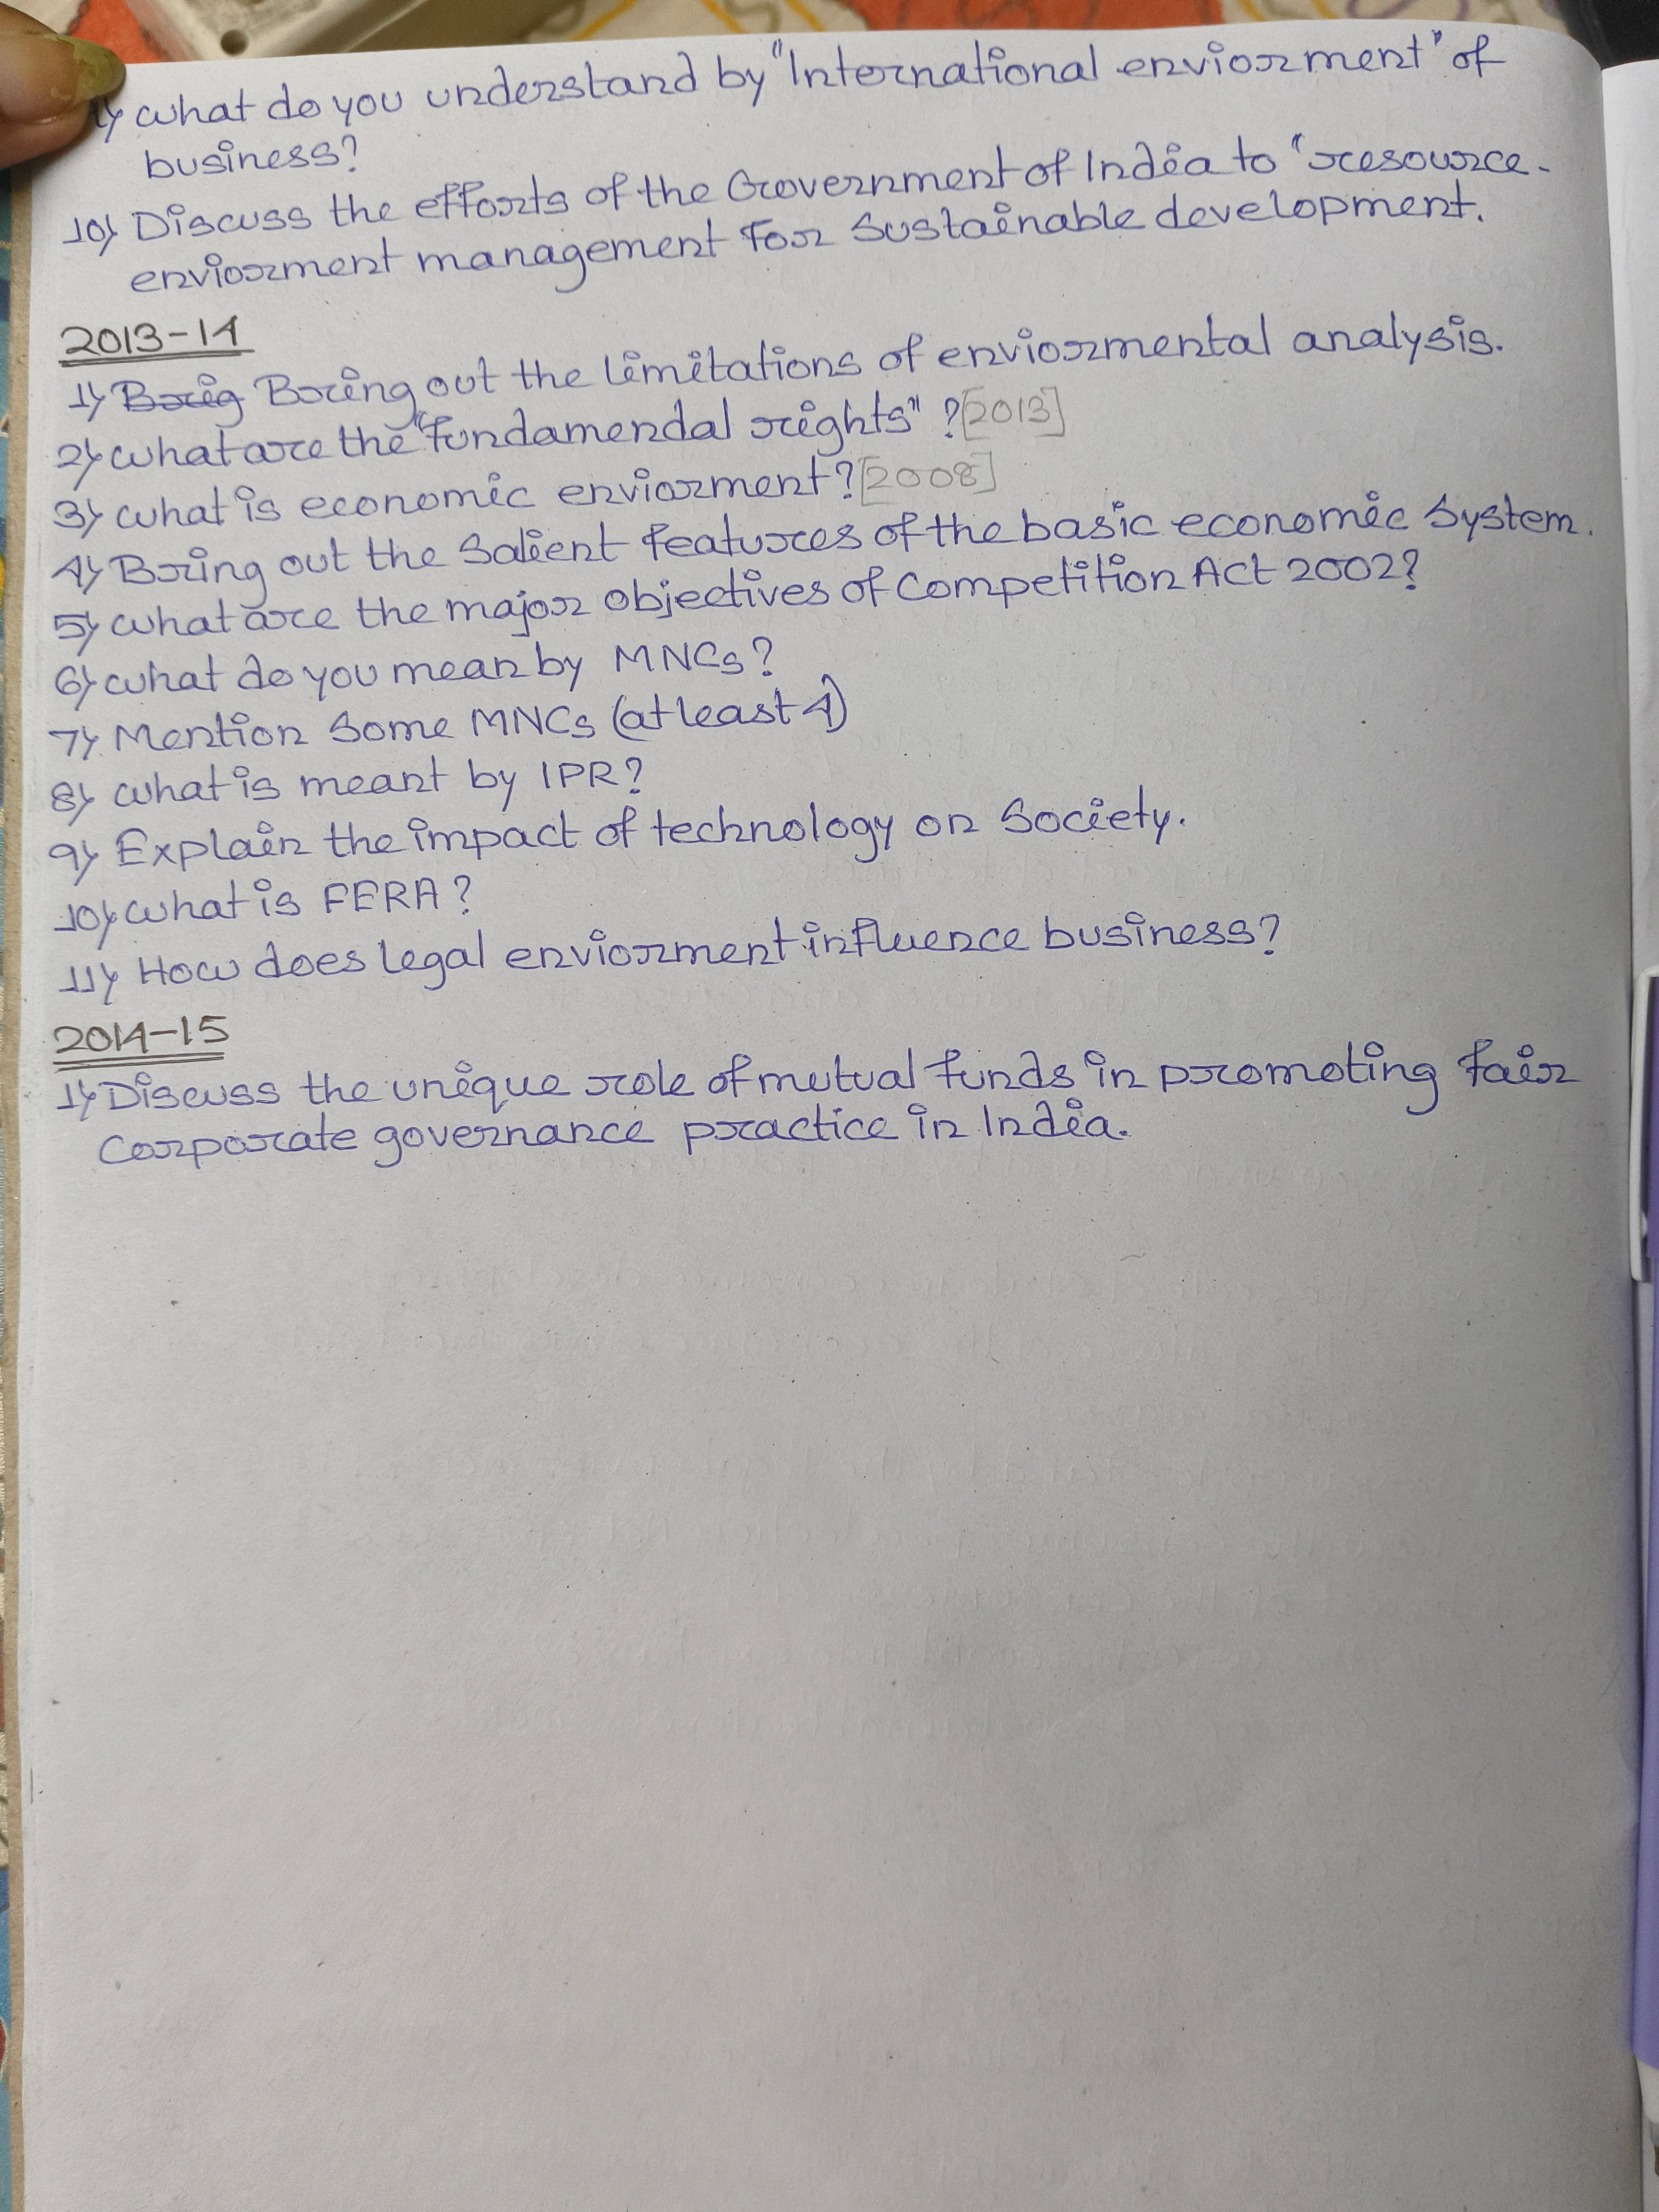 what do you understand by "International enviorment" of
business?
10) Discuss the efforts of the Government of India to "resource-
enviorment management for Sustainable development.
2013-14
1) Brig Bring out the limitations of enviormental analysis.
2) what are the "fundamendal rights" ? [2013]
3) what is economic enviorment? [2008]
4) Bring out the Salient features of the basic economic System.
5) what are the major objectives of Competition Act 2002?
6) what do you mean by MNCs?
7) Mention Some MNCs (at least 4)
8) what is meant by IPR?
9) Explain the impact of technology on Society.
10) what is FERA?
11) How does legal enviorment influence business?
2014-15
1) Discuss the unique role of mutual funds in promoting fair
Corporate governance practice in India.